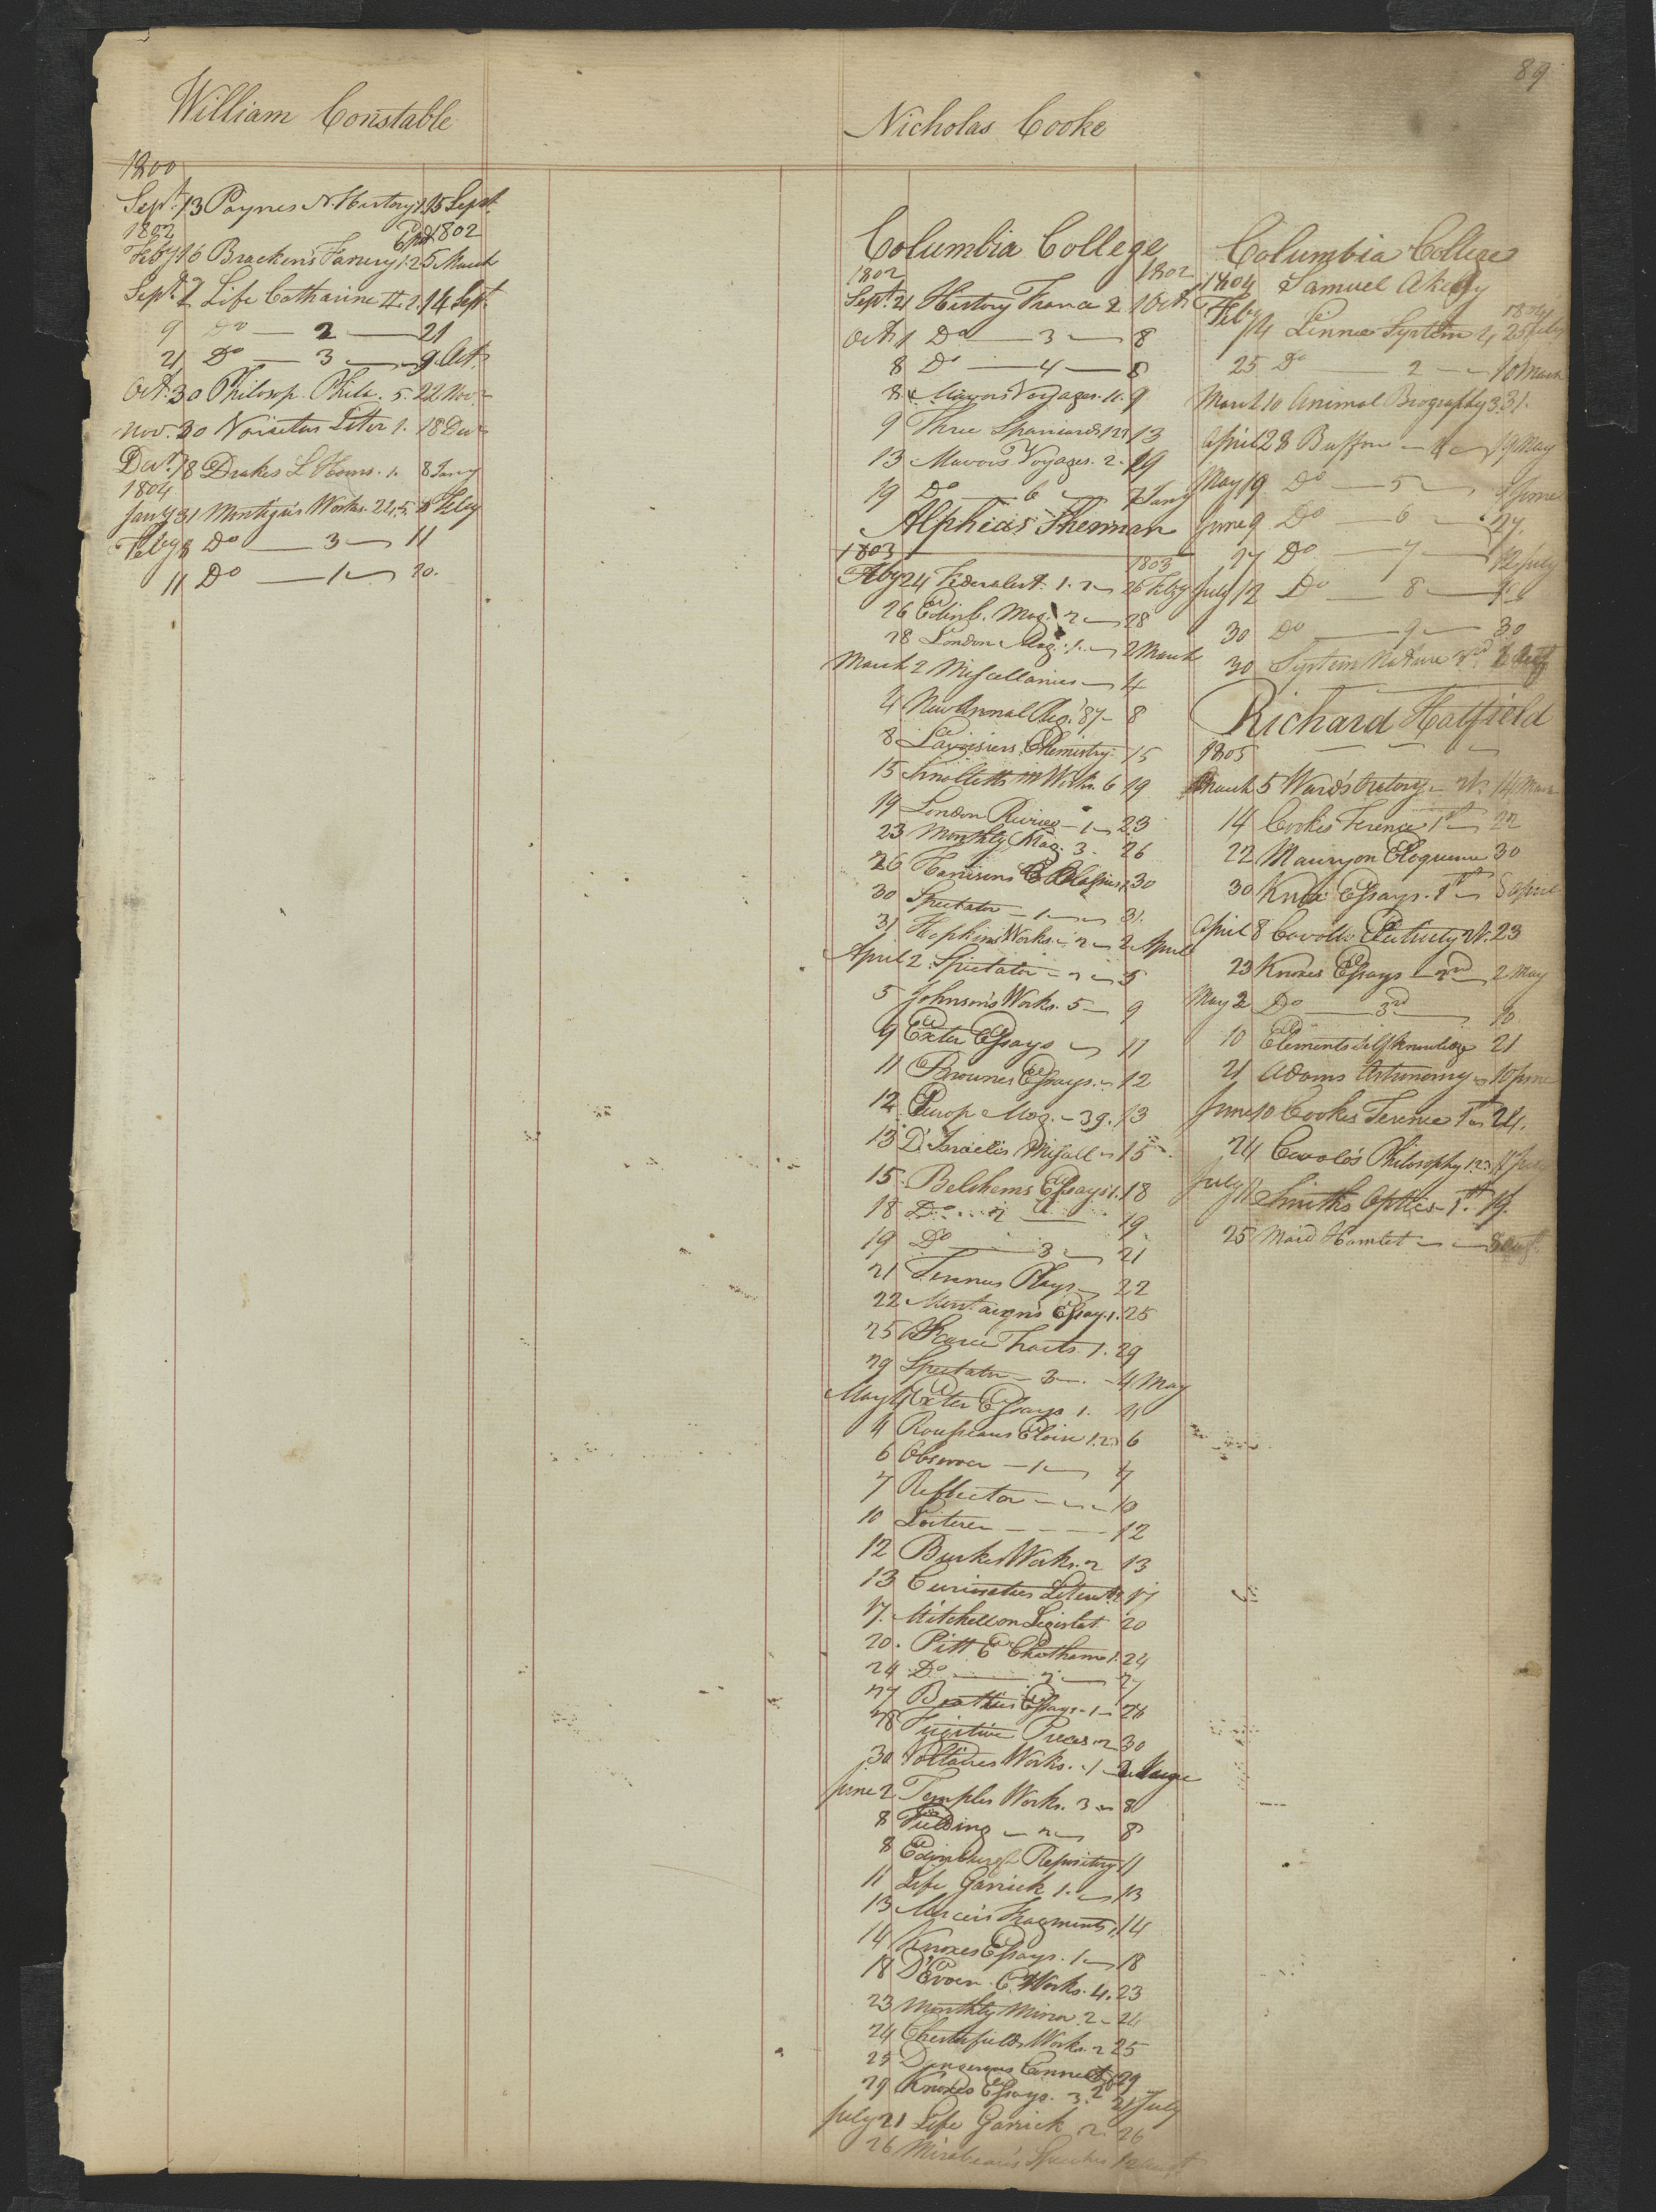 89
William Constable
1800
Sept. 13 Paynes N. History 1. 15 Sept.
1802 1802
Feby 16 Bracken's Farriery 1.2. 5 March
Sept. 2 Life Catharine II 1. 14 Sept.
9 Do — 2 — 21
21 Do — 3 — 9 Oct.
Oct. 30 Philosp. Phila. 5. 22 Nov.
Nov. 30 Liter 1. 18 Decr
Decr. 18 Drakes L Hours. 1. 8 Jany
1804
Jany 31 Works. 2.4.5. 8 Feby
Feby 8 Do — 3 — 11
11 Do — 1 — 20.
Nicholas Cooke
Columbia College
1802 1802
Sept. 21 History France 2 1 Oct.
Oct. 1 Do — 3 — 8
8 Do — 4 — 8
8 Mavors Voyages. 11. 9
9 Three Spaniards 1.2. 13
13 Mavors Voyages. 2. 19
19 Do — 6 — 7 Jany
Alpheus Sherman
1803 1803
Feby 24 Federalist. 1. 2 — 26 Feby
26 Edinb. Mag. 2 — 28
28 London Mag. 1. — 2 March
March 2 Miscellanies — 4
4 New Annal Reg. '87 — 8
8 Lavoisiers Chemistry. 15
15 Smolletts M Works. 6 19
19 London Review — 1 — 23
23 Monthly Mag. 3. 26
26 Harrisons B Classics 1. 30
30 Spectator — 1 — 31.
31 Hopkins Works — 2 — 2 April
April 2. Spectator — 2 — 5
5 Johnson's Works. 5 — 9
9 Exter Essays — 11
11 Brownes Essays. — 12
12 Europ Mag. — 39. 13
13 D'Israelis Miscell — 15
15. Belshams Essays 1. 18
18 Do. ... 2 — 19
19 Do — 3 — 21
21 Plays — 22
22 Montaigns Essay. 1. 25
25 Scarce Tracts. 1. 29
29 Spectator — 3 — 4 May
May 4 Exter Essays 1. 4
4 Rousseaus Eloise 1.2. 6
6 Observer — 1 — 7
7 Reflector — 10
10 Loiterer — 12
12 Burkes Works. 2 13
13 Curiosities Literat. 2. 17
17. Mitchell on Legislat 20
20. Pitt E Chatham 1. 24
24 Do — 2 — 27
27 Beatties Essays — 1 — 28
28 Fugitive Pieces. 2 30
30 Voltaires Works. 1 — 2 June
June 2 Temples Works. 3 — 8
8 Fielding — 2 — 8
8 Edinburgh Repository 11
11 Life Garrick 1. — 13
13 Merciers Fragments 1. 14
14 Knoxes Essays. 1 — 18
18 D'Evom. Works. 4. 23
23 Monthly Mirror. 2 — 24
24 Chesterfields Works. 2 25
25 Dangerous Connect. 29
29 Knoxes Essays. 3. 21 July
July 21 Life Garrick 2. 26
26 Mirabeau's Speeches 1
Columbia College
1804 Samuel Akerly
1804
Feby 14 Linnes System 4 25 Feby
25 Do — 2 — 10 March
March 10 Animal Biography 3. 31.
April 28 Buffon — 4 — 19 May
May 19 Do — 5 — 9 June
June 9 Do — 6 — 27.
27 Do — 7 — 12 July
July 12 Do — 8 —
30 Do — 9 — 30
30 System Nature 2d.
Richard Hatfield
1805
March 5 Ward's Oratory — 2d. 14 March
14 Cookes Terence 1st — 22
22 Maury on Eloquence 30
30 Knox Essays. 1st — 8 April
April 8 Cavallo Electricity 2d. 23
23 Knoxes Essays — 2nd — 2 May
May 2 Do — 3rd — 10
10 Elements Self Knowledge 21
21 Adams Astronomy — 10 June
June 10 Cookes Terence 1st — 24.
24 Cavalo's Philosophy 1.2. 11 July
July 11 Smith's Optics — 1st. 19.
25 Maid Hamlet — 8 Augt.